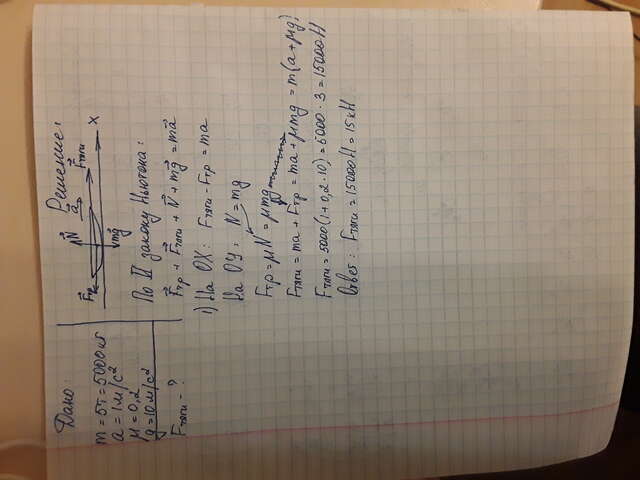 Дано
m = 5т = 5000 кг
a = 1 м/с²
μ = 0,2
g = 10 м/с²
Fтяги = ?
Решение:
Fтр N a Fтяги
mg X
По II закону Ньютона:
Fтр + Fтяги + N + mg = ma
1) На OX: Fтяги - Fтр = ma
На OY: N = mg
Fтр = μN = μmg
Fтяги = ma + Fтр = ma + μmg = m(a + μg)
Fтяги = 5000(1 + 0,2·10) = 5000 · 3 = 15000 Н
Ответ: Fтяги = 15000 Н = 15 кН